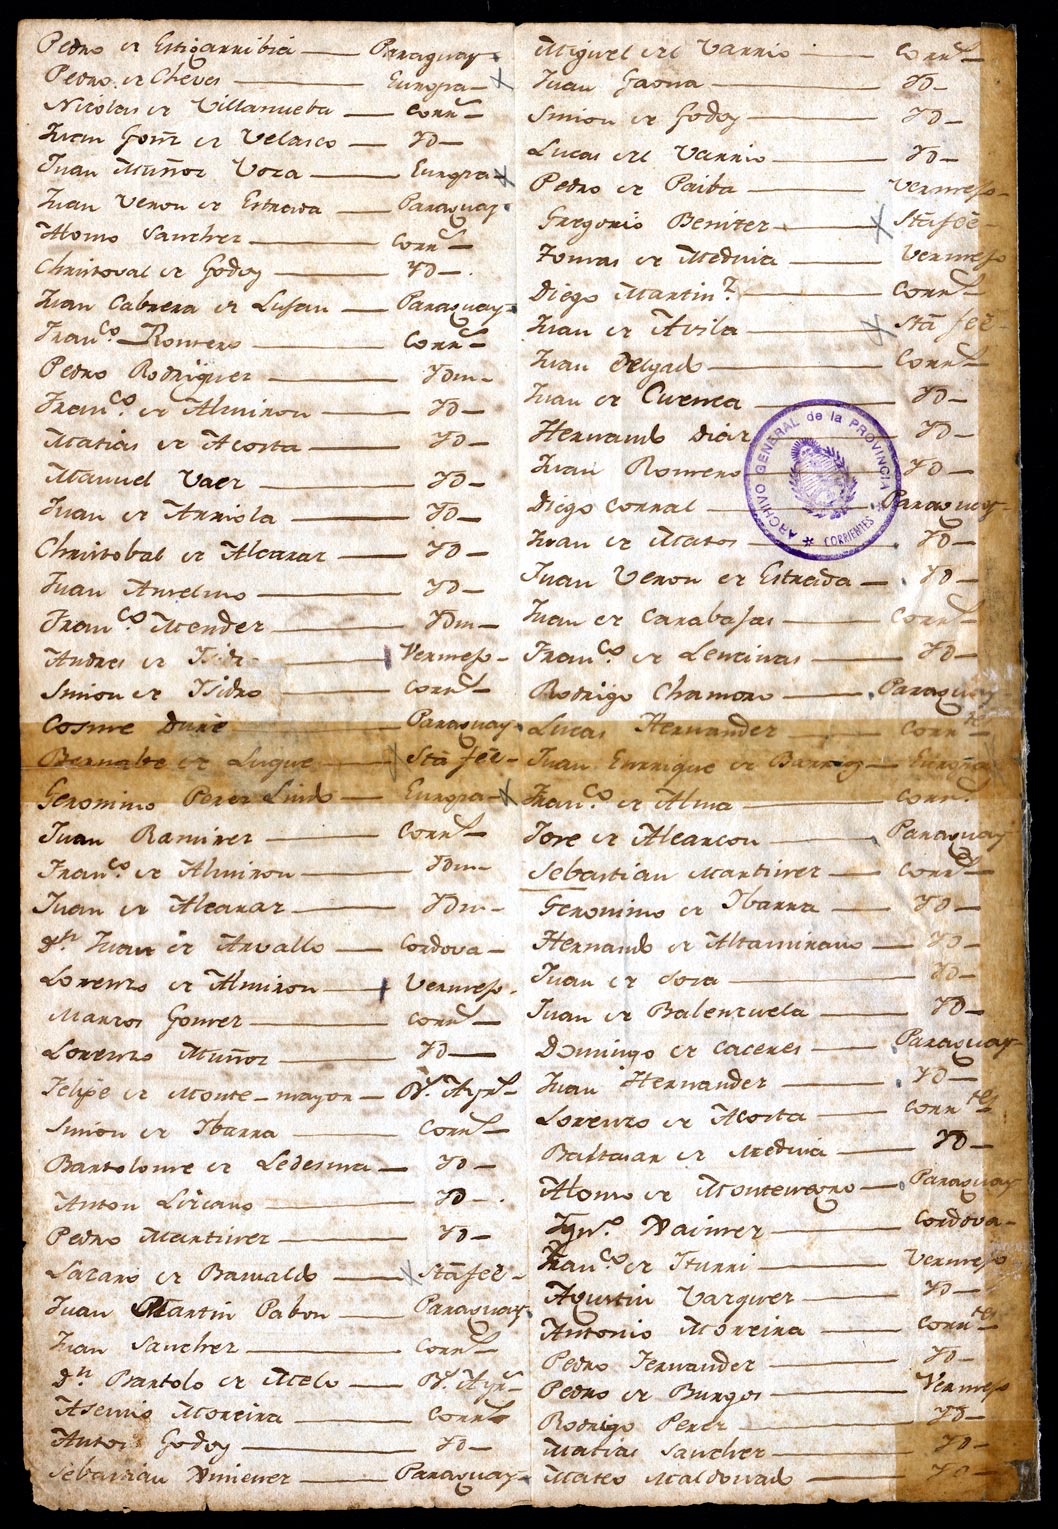 Pedro de Estigarribia — Paraguay
Pedro de Cheves — Europa —
Nicolas de Villanueba — Corrs —
Juan Gomz de Velasco — YD —
Juan Muñoz Vora — Europa
Juan Veron de Estrada — Paraguay
Alonso Sanchez — Corrs —
Christoval de Godoy — YD —
Juan Cabrera de Lujan — Paraguay
Franco. Romero — Corrs —
Pedro Rodriguez — YDm —
Franco. de Almiron — YD —
Matias de Acosta — YD —
Manuel Vaez — YD —
Juan de Arriola — YD —
Christobal de Alcaraz — YD —
Juan Anselmo — YD —
Franco. Mendez — YDm —
Andres de Isidr — Vermejo —
Simon de Isidro — Corrs —
Cosme Duré — Paraguay
Bernabe de Luque — Sta feè —
Geronimo Perez Lindo — Europa —
Juan Ramirez — Corrs —
Franco. de Almiron — YDm —
Juan de Alcaraz — YDm —
Dn Juan de Arvallo — Cordova —
Lorenzo de Almiron — Vermejo.
Marcos Gomez — Corrs —
Lorenzo Muñoz — YD —
Felipe de Monte-mayor — Bs. Ays —
Simon de Ibarra — Corrs —
Bartolome de Ledesma — YD —
Anton Liscano — YD —
Pedro Martinez — YD —
Lazaro de Bawaldo — Sta feè —
Juan Martin Pabon — Paraguay
Juan Sanchez — Corrs —
Dn Bartolo de Melo — Bs. Ays —
Asensio Moreira — Corrs
Anton Godoy — YD —
Sebastian Ximenez — Paraguay
Miguel del Varrio — Corrs —
Juan Gaona — YD —
Simon de Godoy — YD —
Lucas del Varrio — YD —
Pedro de Paiba — Vermejo —
Gregorio Benitez — Sta feè —
Tomas de Medina — Vermejo
Diego Martinz — Corrs —
Juan de Avila — Sta feè —
Juan Delgado — Corrs —
Juan de Cuenca — YD —
Hernando Diaz — YD —
Juan Romero — YD —
Diego Corral — Paraguay —
Juan de Matos — YD —
Juan Veron de Estrada — YD —
Juan de Carabajas — Corrs —
Franco. de Lencinas — YD —
Rodrigo Chamoro — Paraguay
Lucas Hernandez — Corrtes
Juan Enrrique de Barrios — Europa
Franco. de Alma — Corrs
Jose de Alarcon — Paraguay
Sebastian Martinez — Corrs —
Geronimo de Ibarra — YD —
Hernando de Altamirano — YD —
Juan de Sosa — YD —
Juan de Balenzuela — YD —
Domingo de Caceres — Paraguay —
Juan Hernandez — YD —
Lorenzo de Acosta — Corrtes
Baltasar de Medina — YD —
Alonso de Montenegro — Paraguay
Ygno. Naimez — Cordova —
Franco. de Iturri — Vermejo
Agustin Vazquez — YD —
Antonio Moreira — Corrtes
Pedro Fernandez — YD —
Pedro de Burgos — Vermejo
Rodrigo Perez — YD —
Matias Sanchez — YD —
Mateo Maldonado — YD —
ARCHIVO GENERAL de la PROVINCIA
CORRIENTES